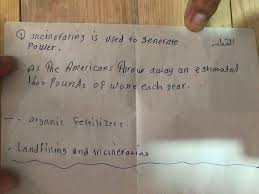 ① incinerating is used to generate
Power.
As the Americans throw away an estimated
1600 Pounds of waste each year.
-- organic fertilizers.
- Landfilling and incinerating